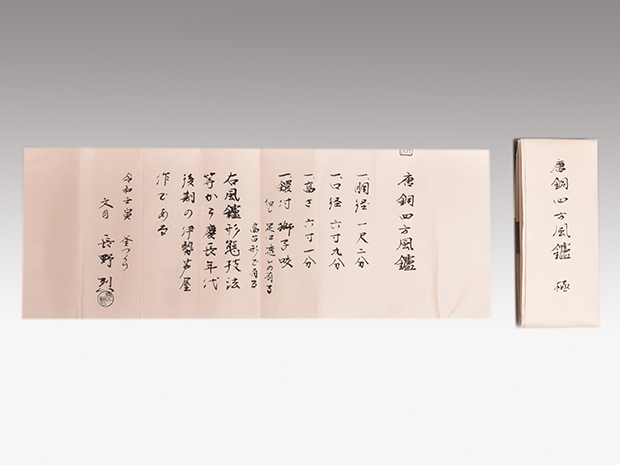 唐銅四方風鑪
一、胴径 一尺二分
一、口径 六寸九分
一、高さ 六寸一分
一、鐶付 獅子咬
但し足は透しの有る
高台形で有る
右風鑪形態技法
等から慶長年代
後期の伊勢芦屋
作である
令和壬寅 釜つくり
文月 長野烈
唐銅四方風鑪 極